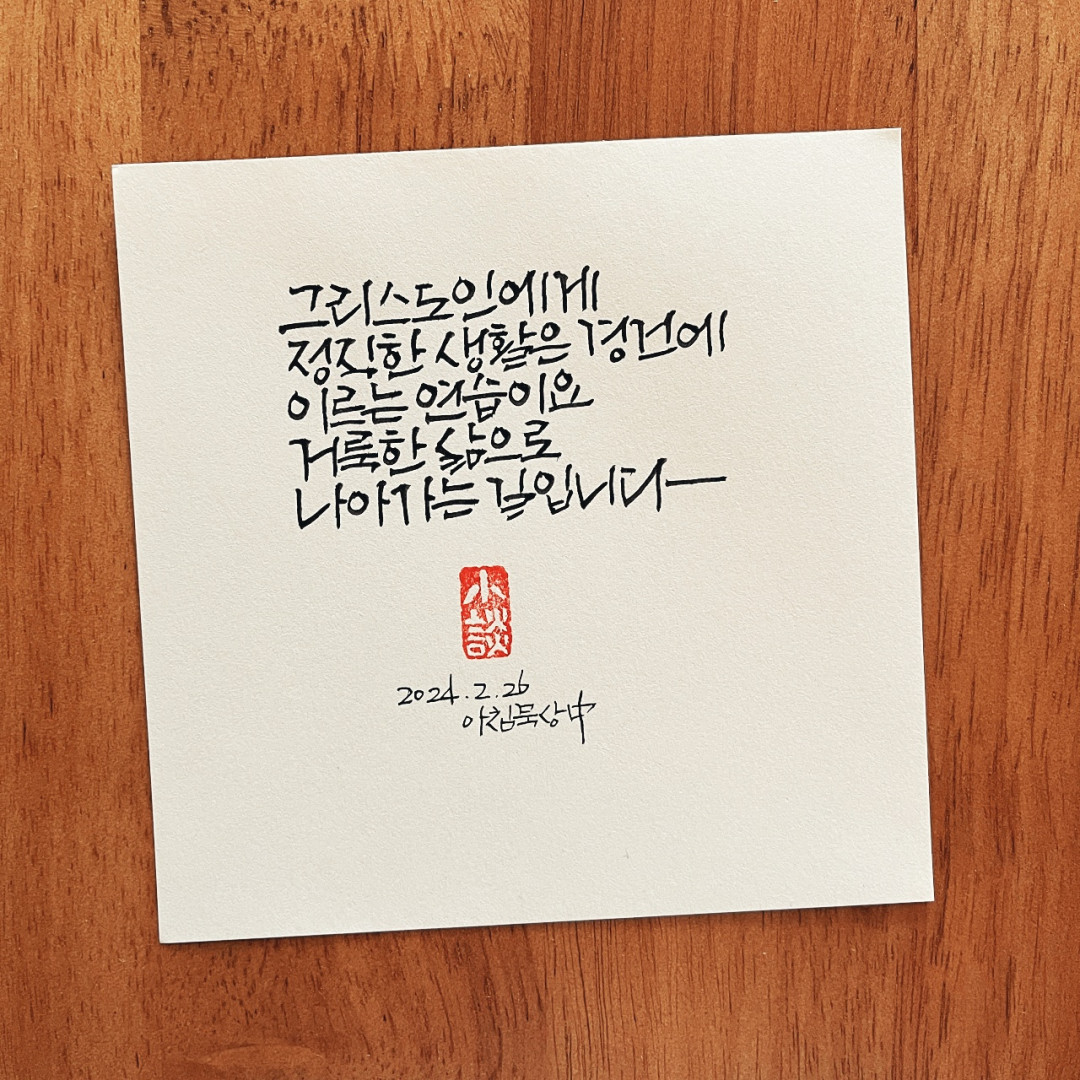 그리스도인에게
정직한 생활은 경건에
이르는 연습이요
거룩한 삶으로
나아가는 길입니다—
小
談
2024.2.26
아침묵상中